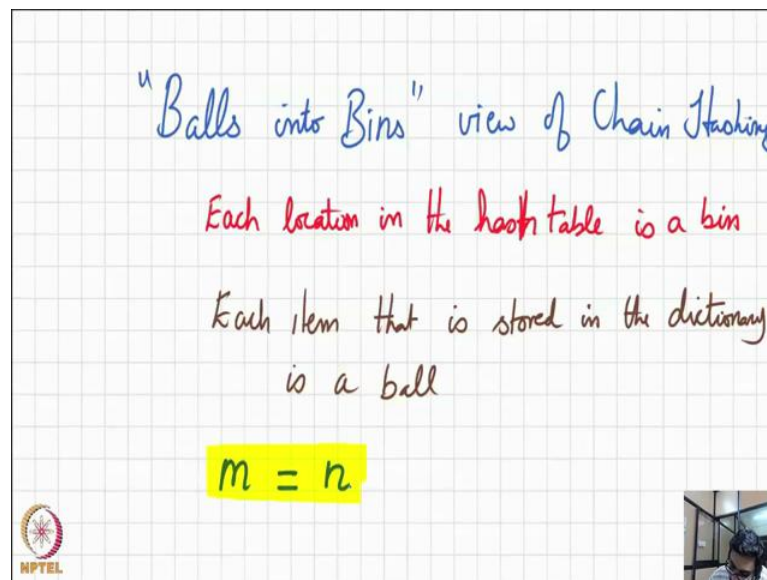 "Balls into Bins" view of Chain Hashing
Each location in the hash table is a bin
Each item that is stored in the dictionary
is a ball
m = n
NPTEL